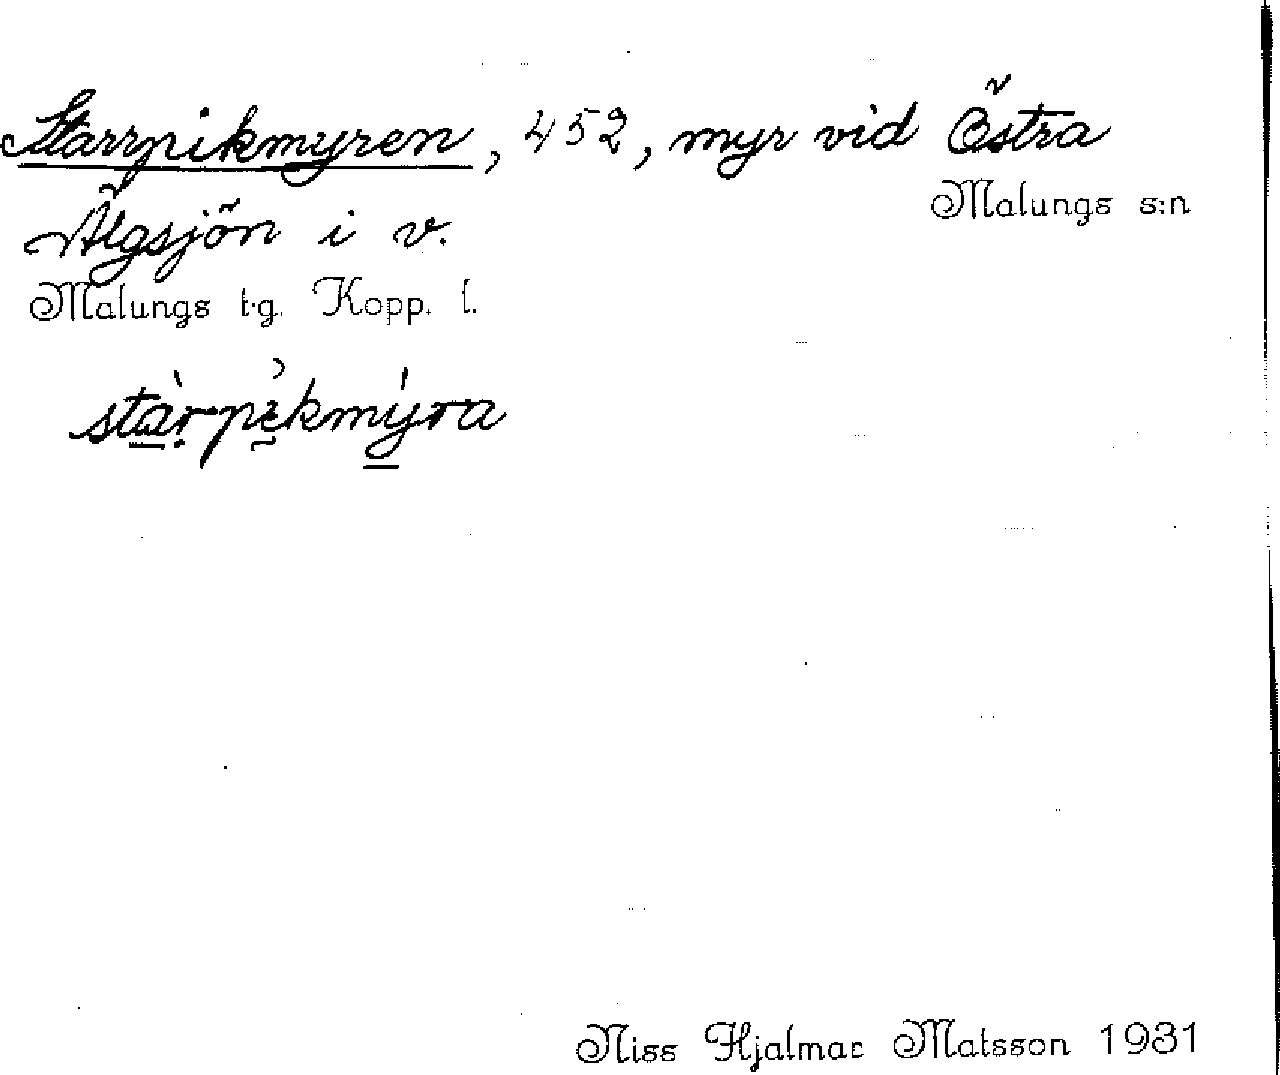 Starrpikmyren, 452, myr vid Östra
Malungs s:n
Älgsjön i v.
Malungs t.g. Kopp. l.
starpikmyra
Niss Hjalmar Matsson 1931